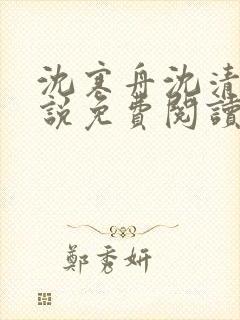 沈寒舟沈清
說免費閱讀
鄭秀妍